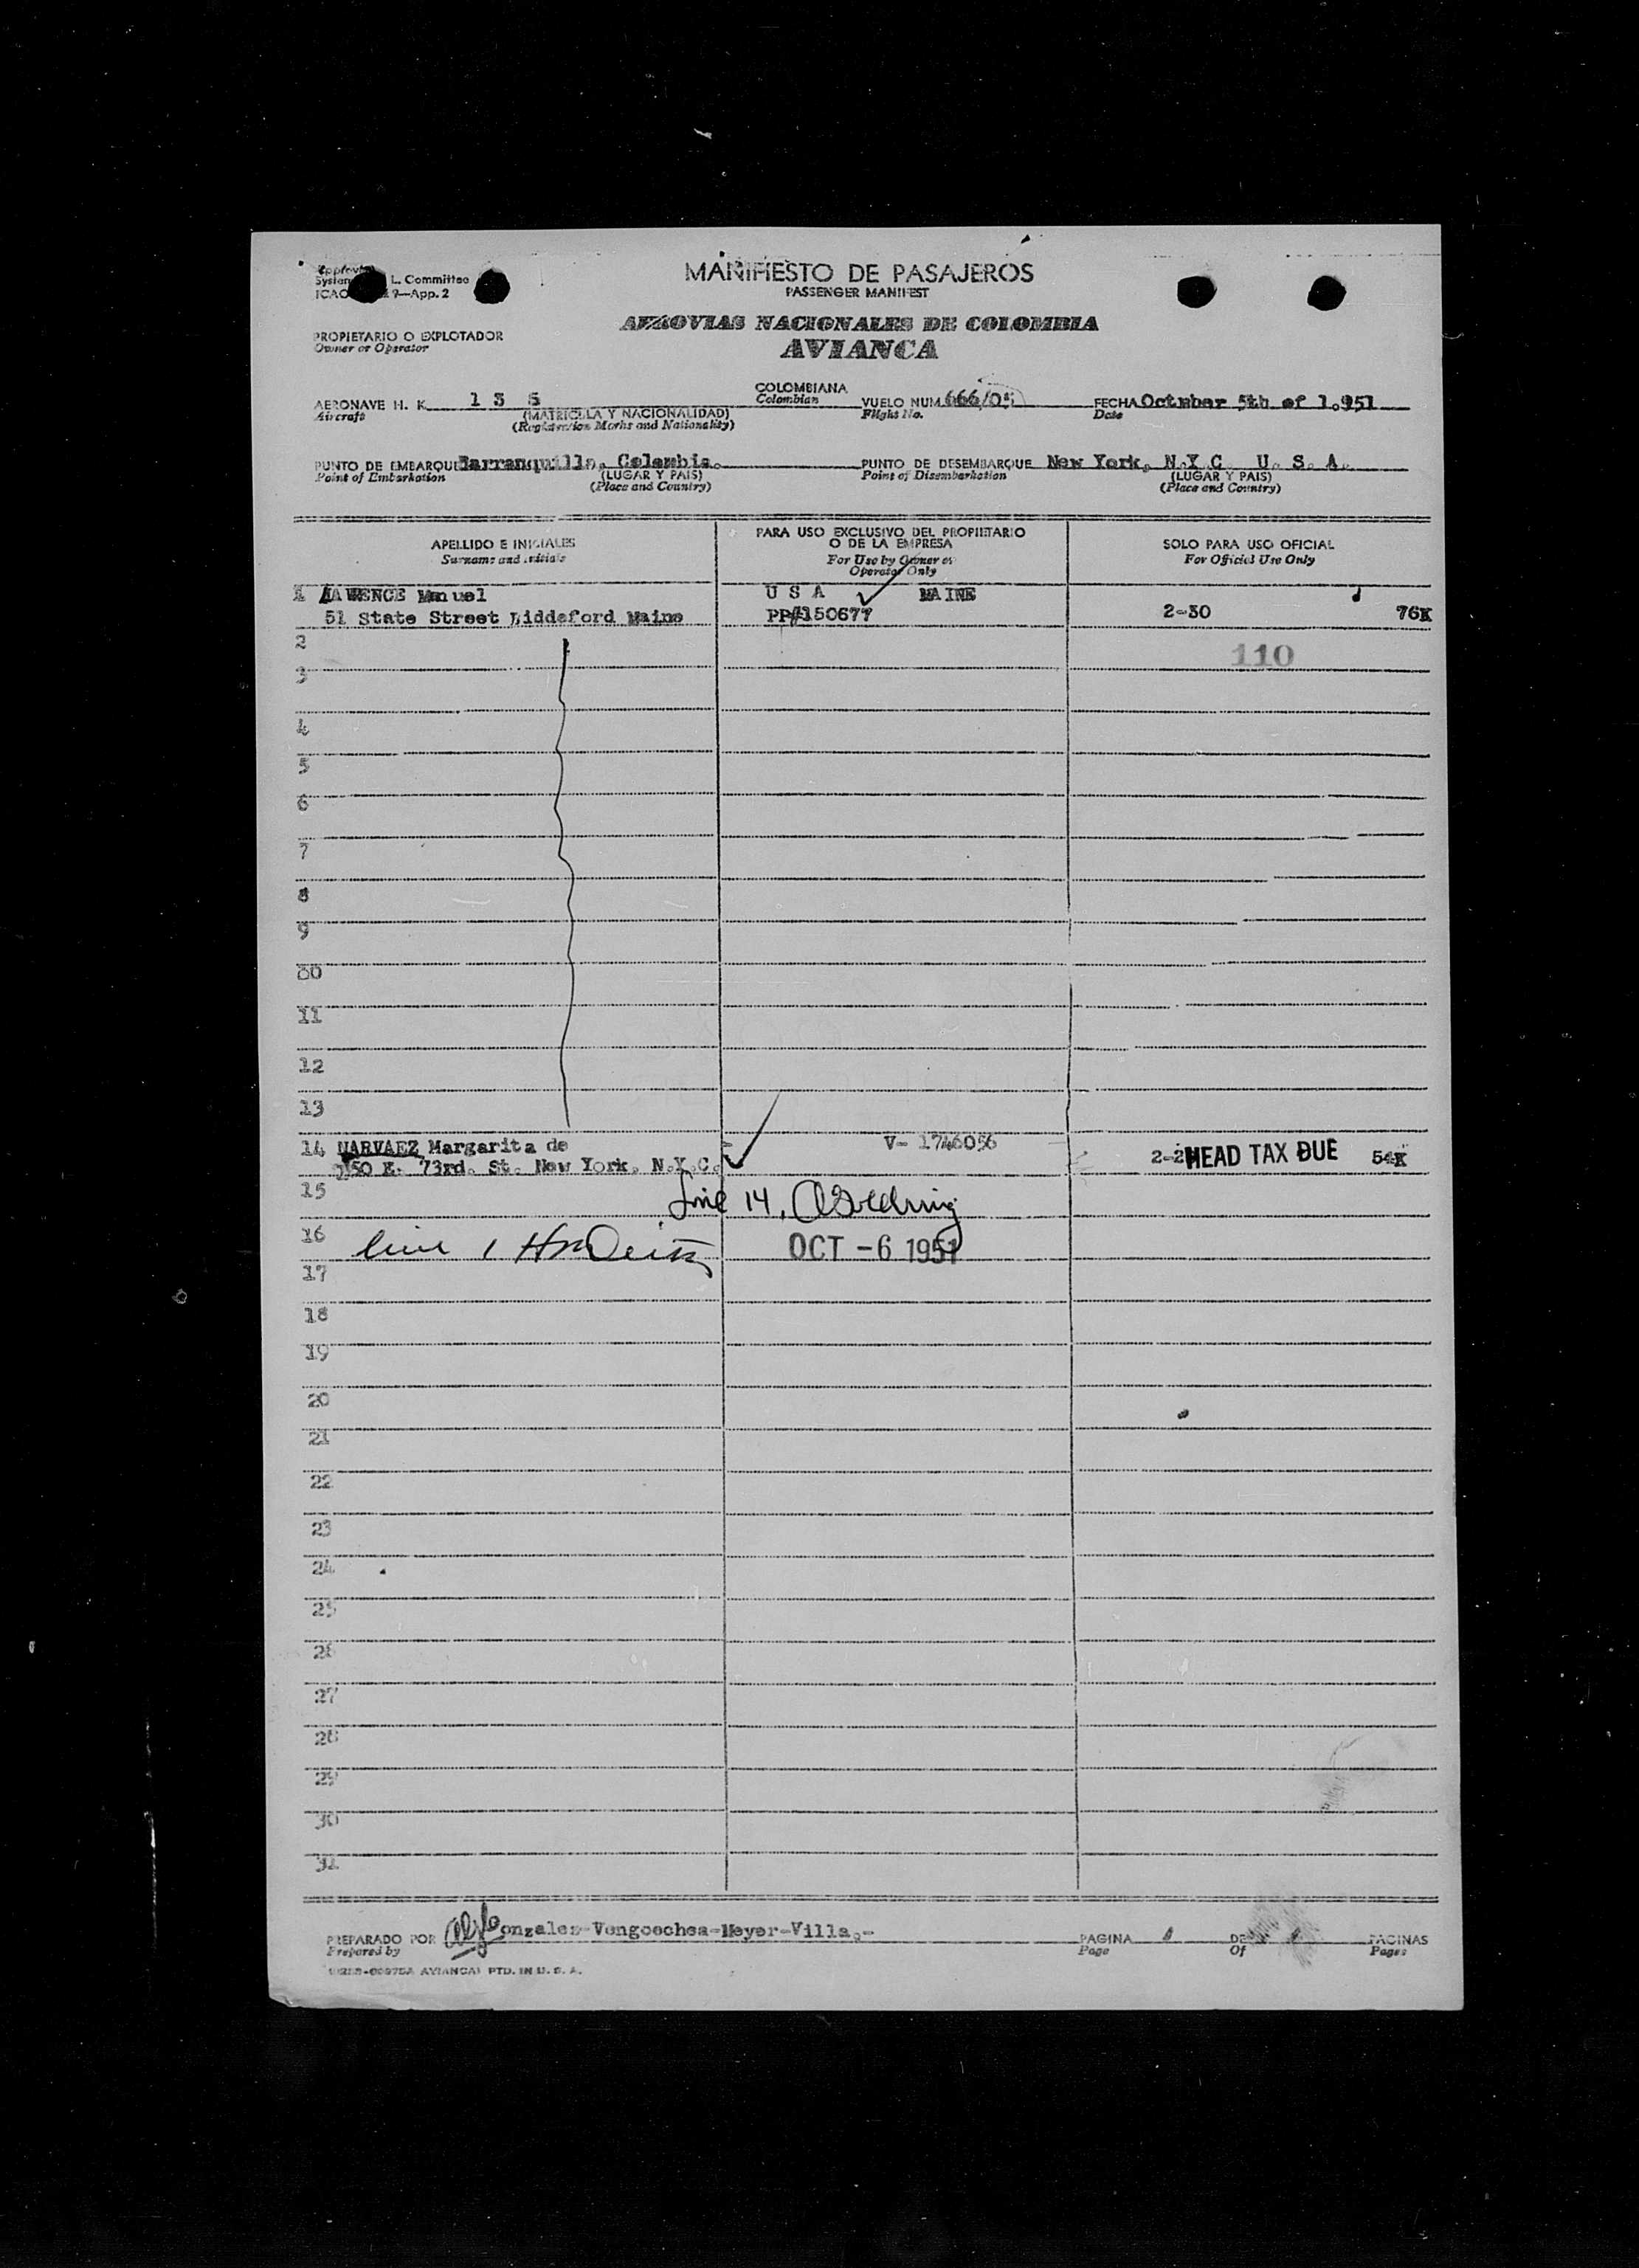 Approved
L. Committee
ICAO 9—App. 2
MANIFIESTO DE PASAJEROS
PASSENGER MANIFEST
PROPIETARIO O EXPLOTADOR
Owner or Operator
AEROVIAS NACIONALES DE COLOMBIA
AVIANCA
AERONAVE H. K.
Aircraft
(MATRICULA Y NACIONALIDAD)
(Registration Marks and Nationality)
COLOMBIANA
Colombian
VUELO NUM. 666/05
Flight No.
FECHA October 5th of 1.951
Date
PUNTO DE EMBARQUE Barranquilla, Colombia.
Point of Embarkation
(LUGAR Y PAIS)
(Place and Country)
PUNTO DE DESEMBARQUE New York, N.Y.C. U. S. A.
Point of Disembarkation
(LUGAR Y PAIS)
(Place and Country)
APELLIDO E INICIALES
Surname and initials
PARA USO EXCLUSIVO DEL PROPIETARIO
O DE LA EMPRESA
For Use by Owner or
Operator Only
SOLO PARA USO OFICIAL
For Official Use Only
1 LAWRENCE Manuel U S A MAINE
51 State Street Biddeford Maine PP#150677 2-30 76K
2
110
3
4
5
6
7
8
9
10
11
12
13
14 NARVAEZ Margarita de V- 1746056
150 E. 73rd. St. New York, N.Y.C. HEAD TAX DUE 54K
15
Line 14,
16
line 1
OCT -6 1951
17
18
19
20
21
22
23
24
25
26
27
28
29
30
31
PREPARADO POR Gonzales-Vengoechea-Meyer-Villa.-
Prepared by
PAGINA 1 DE 1 PAGINAS
Page Of Pages
AVIANCA) PTD. IN U. S. A.